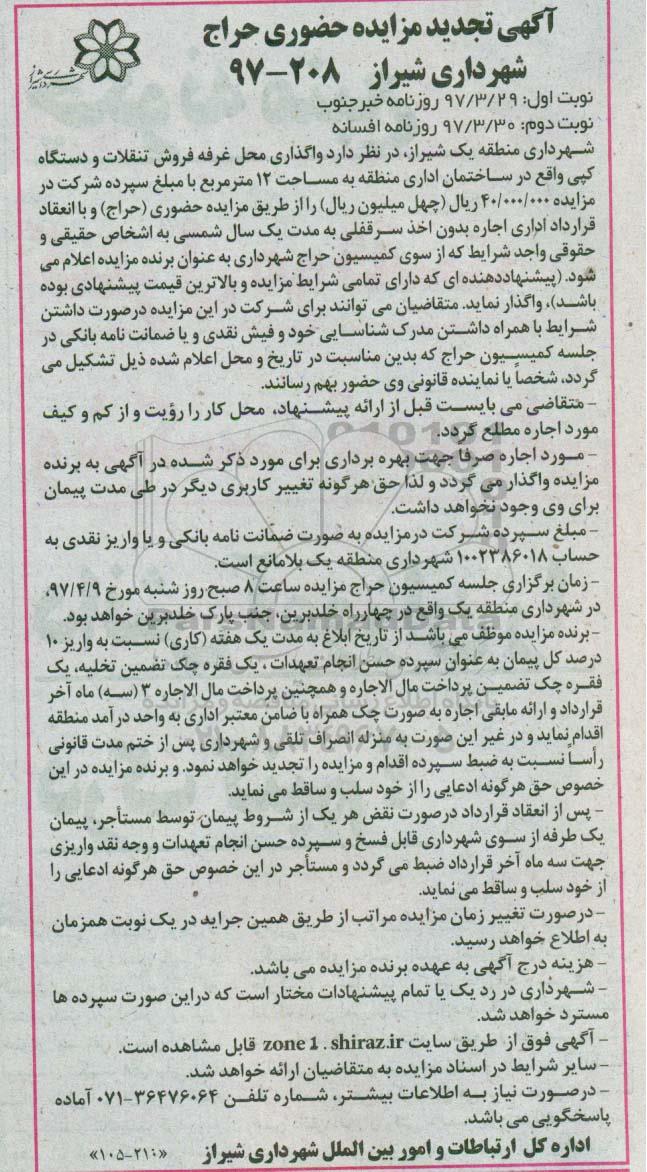 آگهی تجدید مزایده حضوری حراج
شهرداری شیراز ۲۰۸-۹۷
نوبت اول: ۹۷/۳/۲۹ روزنامه خبرجنوب
نوبت دوم: ۹۷/۳/۳۰ روزنامه افسانه
شهرداری منطقه یک شیراز، در نظر دارد واگذاری محل غرفه فروش تنقلات و دستگاه
کپی واقع در ساختمان اداری منطقه به مساحت ۱۲ مترمربع با مبلغ سپرده شرکت در
مزایده ۴۰/۰۰۰/۰۰۰ ریال (چهل میلیون ریال) را از طریق مزایده حضوری (حراج) و با انعقاد
قرارداد اداری اجاره بدون اخذ سرقفلی به مدت یک سال شمسی به اشخاص حقیقی و
حقوقی واجد شرایط که از سوی کمیسیون حراج شهرداری به عنوان برنده مزایده اعلام می
شود. (پیشنهاددهنده ای که دارای تمامی شرایط مزایده و بالاترین قیمت پیشنهادی بوده
باشد)، واگذار نماید. متقاضیان می توانند برای شرکت در این مزایده درصورت داشتن
شرایط با همراه داشتن مدرک شناسایی خود و فیش نقدی و یا ضمانت نامه بانکی در
جلسه کمیسیون حراج که بدین مناسبت در تاریخ و محل اعلام شده ذیل تشکیل می
گردد، شخصاً یا نماینده قانونی وی حضور بهم رسانند.
- متقاضی می بایست قبل از ارائه پیشنهاد، محل کار را رؤیت و از کم و کیف
مورد اجاره مطلع گردد.
- مورد اجاره صرفا جهت بهره برداری برای مورد ذکر شده در آگهی به برنده
مزایده واگذار می گردد و لذا حق هرگونه تغییر کاربری دیگر در طی مدت پیمان
برای وی وجود نخواهد داشت.
- مبلغ سپرده شرکت درمزایده به صورت ضمانت نامه بانکی و یا واریز نقدی به
حساب ۱۰۰۲۳۸۶۰۱۸ شهرداری منطقه یک بلامانع است.
- زمان برگزاری جلسه کمیسیون حراج مزایده ساعت ۸ صبح روز شنبه مورخ ۹۷/۴/۹،
در شهرداری منطقه یک واقع در چهارراه خلدبرین، جنب پارک خلدبرین خواهد بود.
- برنده مزایده موظف می باشد از تاریخ ابلاغ به مدت یک هفته (کاری) نسبت به واریز ۱۰
درصد کل پیمان به عنوان سپرده حسن انجام تعهدات ، یک فقره چک تضمین تخلیه، یک
فقره چک تضمین پرداخت مال الاجاره و همچنین پرداخت مال الاجاره ۳ (سه) ماه آخر
قرارداد و ارائه مابقی اجاره به صورت چک همراه با ضامن معتبر اداری به واحد درآمد منطقه
اقدام نماید و در غیر این صورت به منزله انصراف تلقی و شهرداری پس از ختم مدت قانونی
رأساً نسبت به ضبط سپرده اقدام و مزایده را تجدید خواهد نمود. و برنده مزایده در این
خصوص حق هرگونه ادعایی را از خود سلب و ساقط می نماید.
- پس از انعقاد قرارداد درصورت نقض هر یک از شروط پیمان توسط مستأجر، پیمان
یک طرفه از سوی شهرداری قابل فسخ و سپرده حسن انجام تعهدات و وجه نقد واریزی
جهت سه ماه آخر قرارداد ضبط می گردد و مستأجر در این خصوص حق هرگونه ادعایی را
از خود سلب و ساقط می نماید.
- درصورت تغییر زمان مزایده مراتب از طریق همین جراید در یک نوبت همزمان
به اطلاع خواهد رسید.
- هزینه درج آگهی به عهده برنده مزایده می باشد.
- شهرداری در رد یک یا تمام پیشنهادات مختار است که دراین صورت سپرده ها
مسترد خواهد شد.
- آگهی فوق از طریق سایت zone 1 . shiraz.ir قابل مشاهده است.
- سایر شرایط در اسناد مزایده به متقاضیان ارائه خواهد شد.
- درصورت نیاز به اطلاعات بیشتر، شماره تلفن ۳۶۴۷۶۰۶۴-۰۷۱ آماده
پاسخگویی می باشد.
اداره کل ارتباطات و امور بین الملل شهرداری شیراز «۲۱۰-۱۰۵»